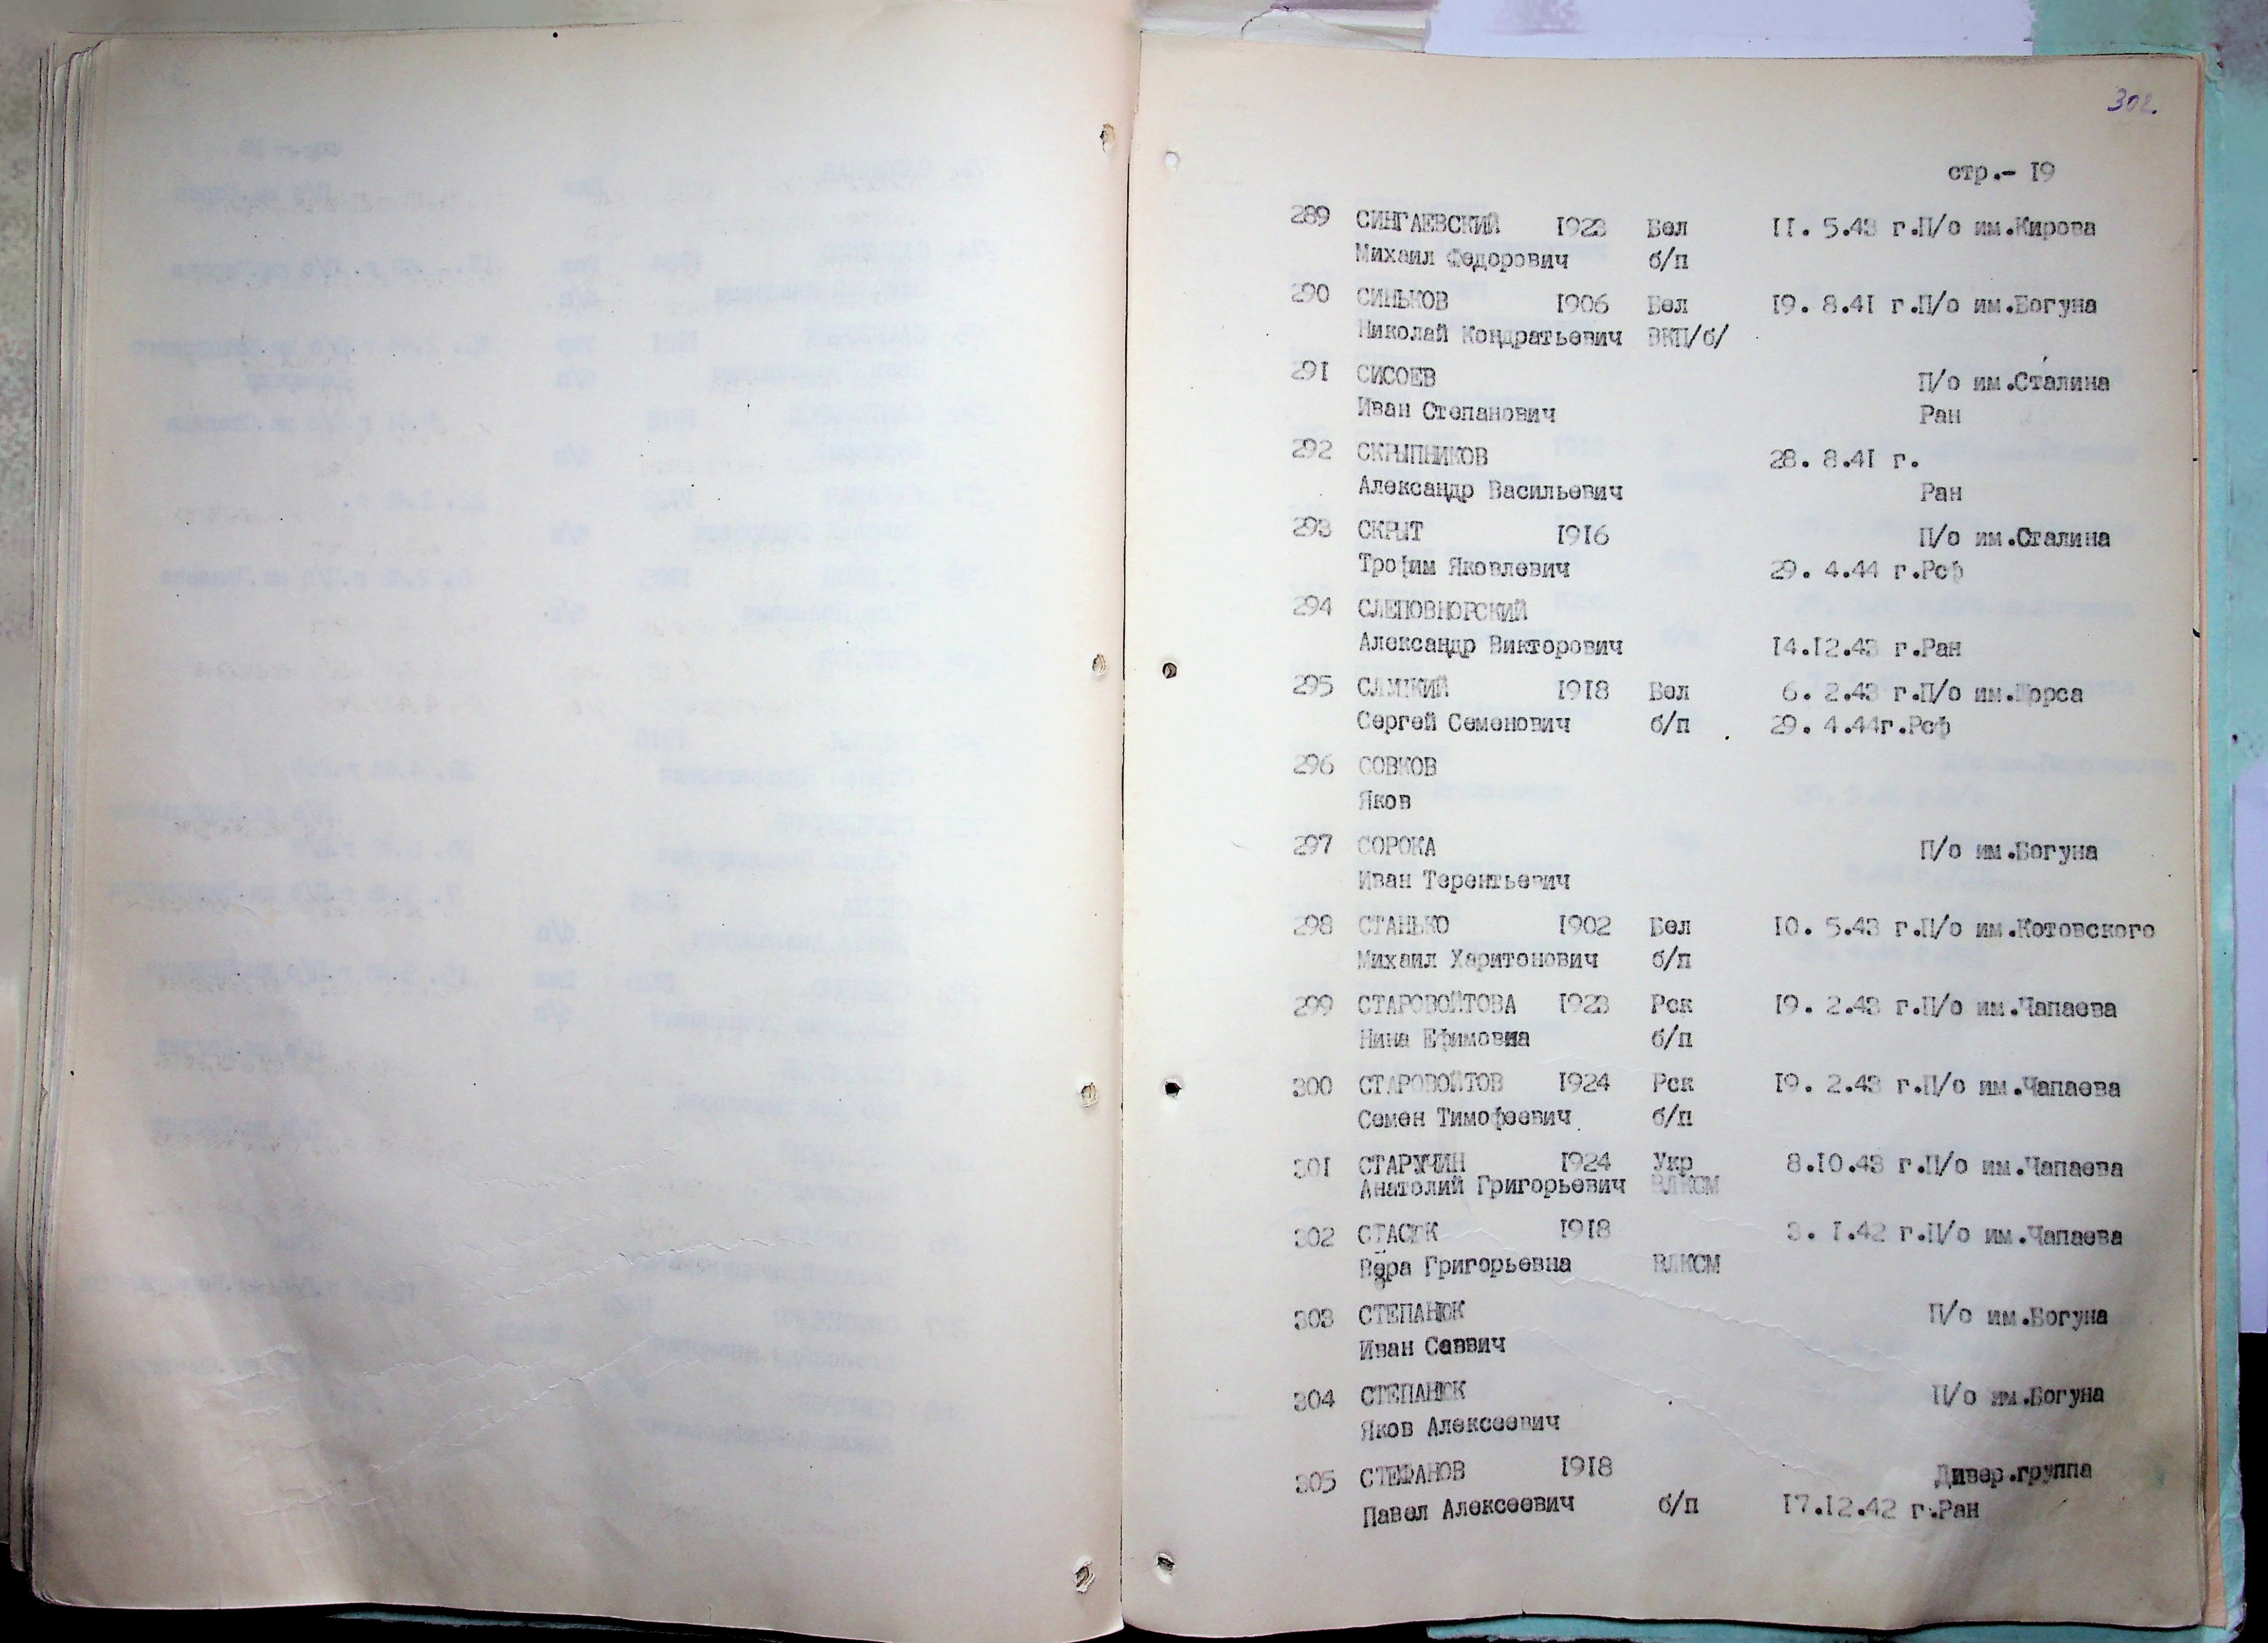 302.
стр.- 19
289 СИНГАЕВСКИЙ 1923 Бел 11. 5.43 г.П/о им.Кирова
Михаил Федорович б/п
290 СИНЬКОВ 1906 Бел 19. 8.41 г.П/о им.Богуна
Николай Кондратьевич ВКП/б/
291 СИСОЕВ П/о им.Сталина
Иван Степанович Ран
292 СКРЫПНИКОВ 28. 8.41 г.
Александр Васильевич Ран
293 СКРЫТ 1916 П/о им.Сталина
Трофим Яковлевич 29. 4.44 г.Рсф
294 СЛЕПОВНОРСКИЙ
Александр Викторович 14.12.43 г.Ран
295 СЛУЦКИЙ 1918 Бел 6. 2.43 г.П/о им.Щорса
Сергей Семенович б/п 29. 4.44г.Рсф
296 СОВКОВ
Яков
297 СОРОКА П/о им.Богуна
Иван Терентьевич
298 СТАНЬКО 1902 Бел 10. 5.43 г.П/о им.Котовского
Михаил Харитонович б/п
299 СТАРОВОЙТОВА 1923 Рск 19. 2.43 г.П/о им.Чапаева
Нина Ефимовна б/п
300 СТАРОВОЙТОВ 1924 Рск 19. 2.43 г.П/о им.Чапаева
Семен Тимофеевич б/п
301 СТАРУЧИН 1924 Укр 8.10.43 г.П/о им.Чапаева
Анатолий Григорьевич ВЛКСМ
302 СТАСЮК 1918 3. 1.42 г.П/о им.Чапаева
Вера Григорьевна ВЛКСМ
303 СТЕПАНЮК П/о им.Богуна
Иван Саввич
304 СТЕПАНЮК П/о им.Богуна
Яков Алексеевич
305 СТЕФАНОВ 1918 Дивер.группа
Павел Алексеевич б/п 17.12.42 г.Ран